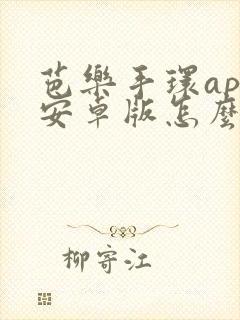 芭樂手環ap
安卓版怎麼
柳寄江